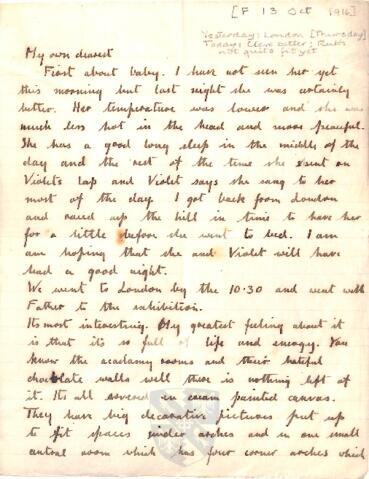 [F 13 Oct 1916]
Yesterday: London [Thursday]
Today: Clare better; Ruth
not quite fit yet
My own dearest
First about baby. I have not seen her yet
this morning but last night she was certainly
better. Her temperature was lower and she was
much less hot in the head and more peaceful.
She has a good long sleep in the middle of the
day and the rest of the time she spent on
Violet's lap and Violet says she sang to her
most of the day. I got back from London
and raced up the hill in time to have her
for a little before she went to bed. I am
am hoping that she and Violet will have
had a good night.
We went to London by the 10.30 and went with
Father to the exhibition.
Its most interesting. My greatest feeling about it
is that its so full of life and energy. You
know the acadamy rooms and their hateful
chocolate walls well there is nothing left of
it. Its all covered in cream painted canvas.
They have big decorative pictures put up
to fit spaces under arches and in one small
central room which has four corner arches which